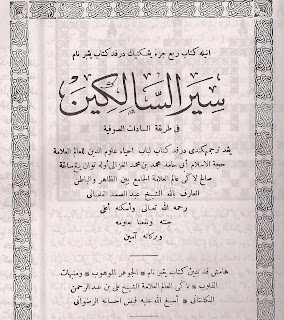 اينله كتاب ربع جزء يڠكتيݢ درڤد كتاب يڠبرنام
سير السالكين
فى طريقة السادات الصوفية
يڠد ترجمهكندى درڤد كتاب لباب احياء علوم الدين للعالم العلامة
حجة الاسلام أبى حامد محمد بن محمد الغزالى أوله توان يڠ سڠة
صالح لاݢى عالم العلامة الجامع بين الظاهر والباطن
العارف بالله الشيخ عبد الصمد الفلمبانى
رحمه الله تعالى وأسكنه أعلى
جنته ونفعنا بعلومه
وبركاته آمين
هامش ڤد تڤين كتاب يڠبرنام * الجوهر الموهوب * ومنبهات
القلوب * باݢى العالم العلامة الشيخ على بن عبد الرحمن
الكلنتانى * أسبغ الله عليه فيض احسانه الرضوانى